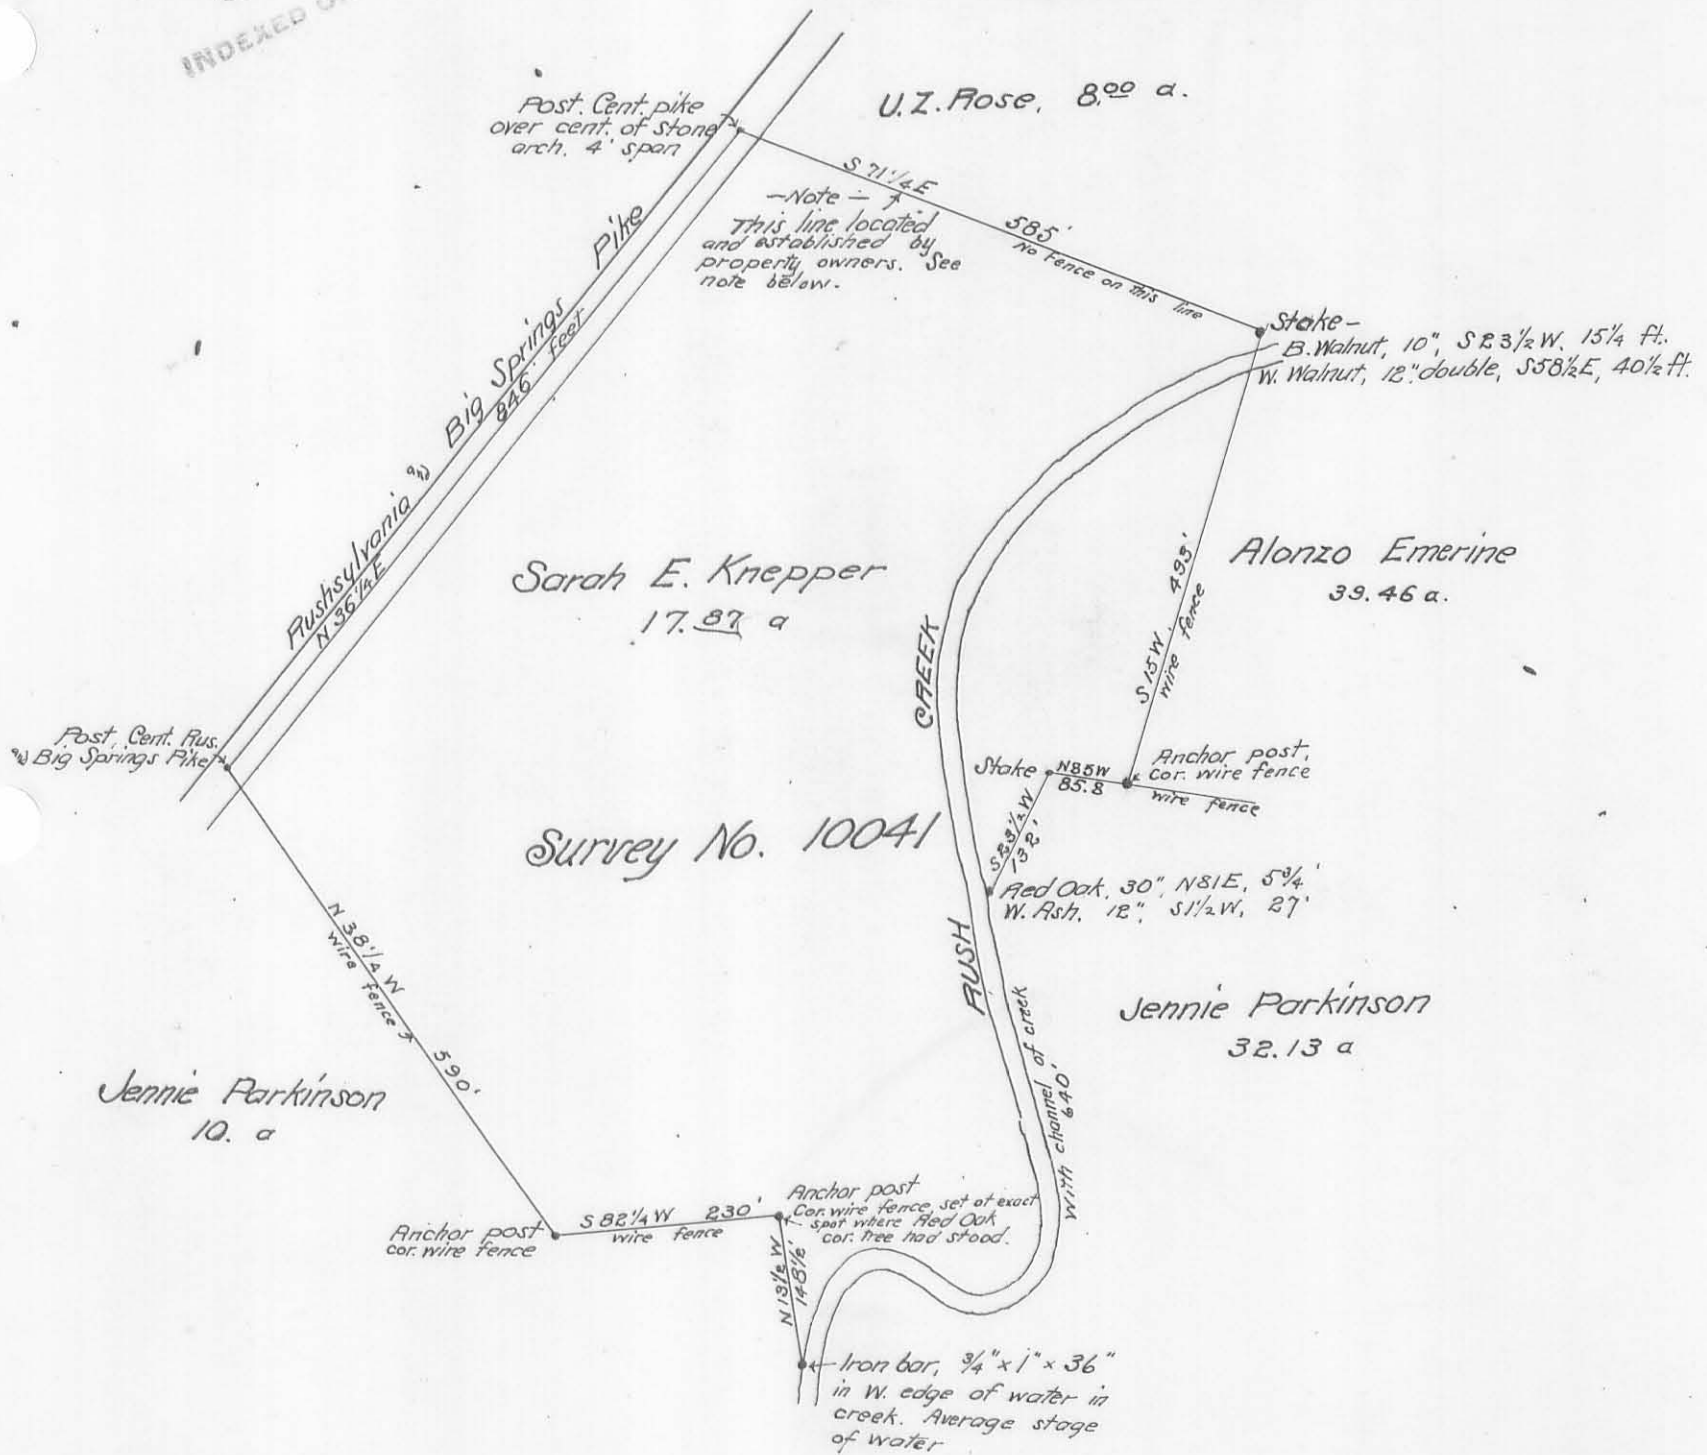 INDEXED
Post. Cent. pike
over cent. of stone
arch. 4' span
U.Z. Rose, 8.00 a.
S 71 1/4 E
585'
No Fence on this line
- Note -
This line located
and established by
property owners. See
note below.
Rushsylvania and Big Springs Pike
N 36 1/4 E
846' feet
Stake -
B. Walnut, 10", S 23 1/2 W. 15 1/4 ft.
W. Walnut, 12" double, S58 1/2 E, 40 1/2 ft.
Sarah E. Knepper
17.87 a
Alonzo Emerine
39.46 a.
S 15 W. 493'
wire fence
CREEK
Post, Cent. Rus.
and Big Springs Pike
Stake
N85W
85.8
Anchor post,
cor. wire fence
wire fence
S23 1/2 W
132'
Survey No. 10041
Red Oak, 30", N81E, 5 3/4'
W. Ash, 12", S1 1/2 W, 27'
RUSH
N 38 1/4 W 590'
wire fence
Jennie Parkinson
32.13 a
with channel of creek
640'
Jennie Parkinson
10. a
Anchor post
cor. wire fence
S 82 1/4 W 230'
wire fence
Anchor post
Cor. wire fence, set at exact
spot where Red Oak
cor. tree had stood.
N 13 1/2 W
148 1/2'
Iron bar, 3/4" x 1" x 36"
in W. edge of water in
creek. Average stage
of water